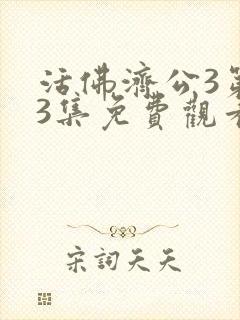 活佛濟公3第
3集免費觀看
宋詞天天